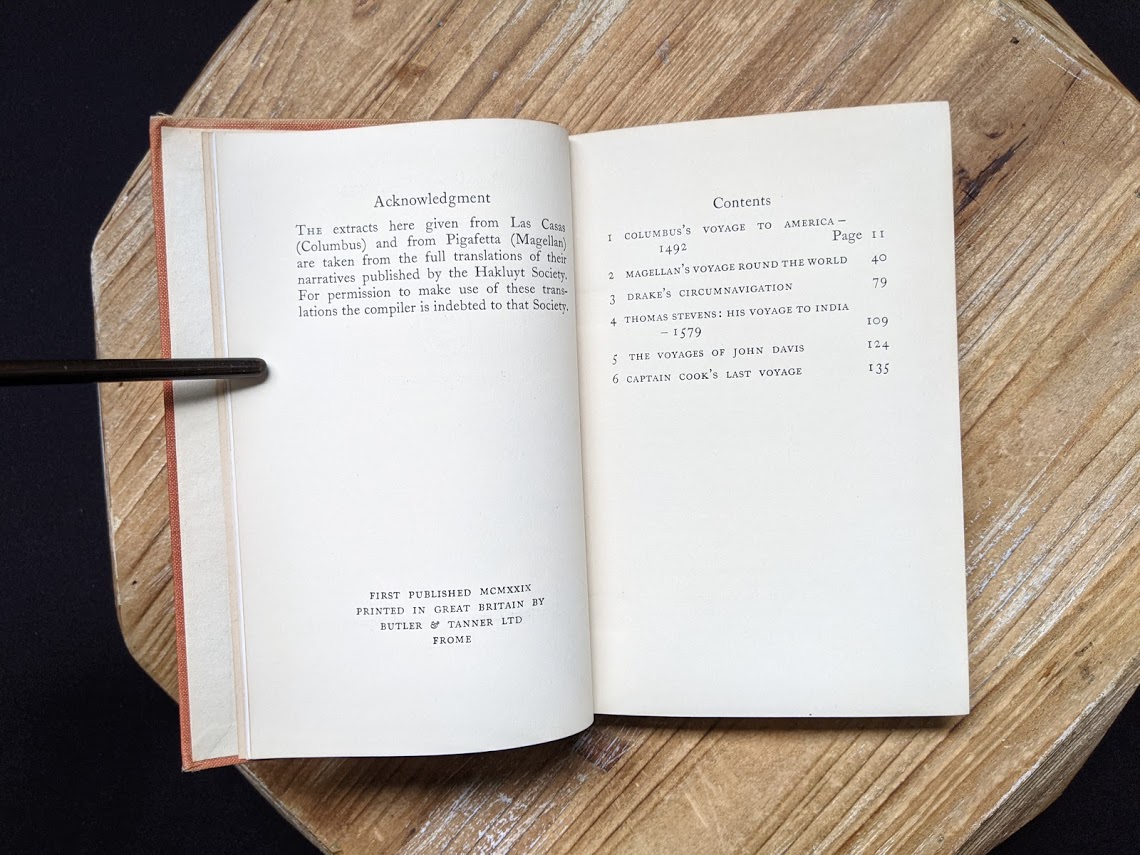 Acknowledgment
THE extracts here given from Las Casas
(Columbus) and from Pigafetta (Magellan)
are taken from the full translations of their
narratives published by the Hakluyt Society.
For permission to make use of these trans-
lations the compiler is indebted to that Society.
FIRST PUBLISHED MCMXXIX
PRINTED IN GREAT BRITAIN BY
BUTLER & TANNER LTD
FROME
Contents
1 COLUMBUS'S VOYAGE TO AMERICA –
1492 Page 11
2 MAGELLAN'S VOYAGE ROUND THE WORLD 40
3 DRAKE'S CIRCUMNAVIGATION 79
4 THOMAS STEVENS: HIS VOYAGE TO INDIA
– 1579 109
5 THE VOYAGES OF JOHN DAVIS 124
6 CAPTAIN COOK'S LAST VOYAGE 135